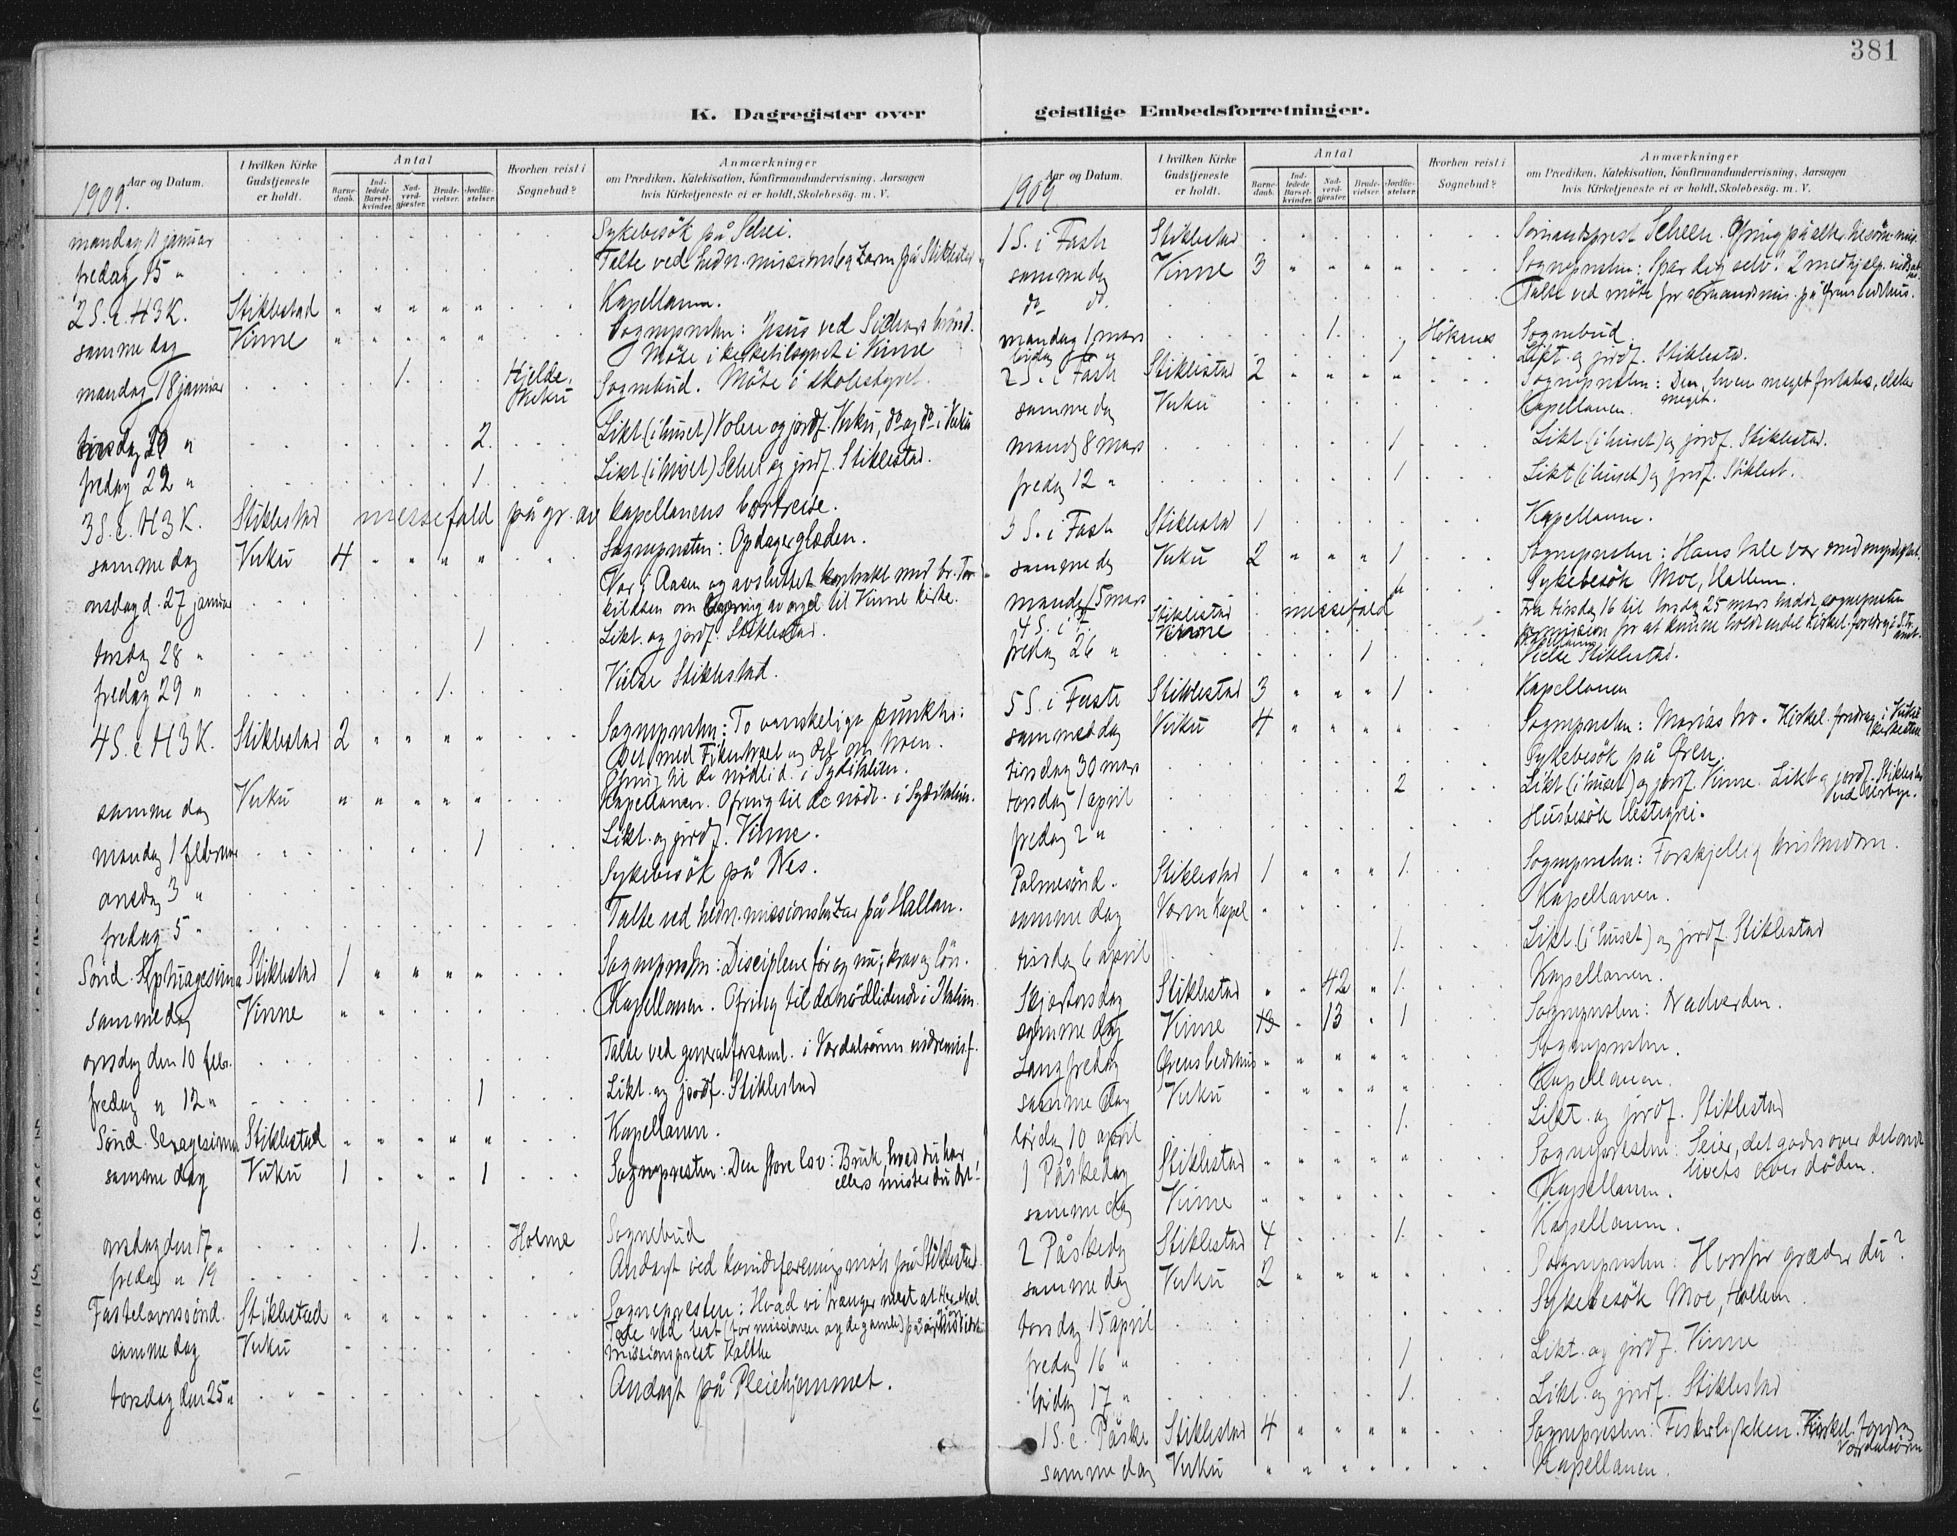 381
K. Dagregister over geistlige Embedsforretninger.
Aar og Datum. I hvilken Kirke Gudstjeneste er holdt. Antal Barnedaab. Indledede Barselkvinder. Nadverdgjæster. Brudevielser. Jordfæstelser. Hvorhen reist i Sognebud? Anmærkninger om Prædiken, Katekisation, Konfirmandundervisning, Aarsagen hvis Kirketjeneste ei er holdt, Skolebesøg. m. V.
1909.
mandag 11 januar Sykebesök på
fredag 15 " Talte ved hedn. missionsbazaren på Stiklestad
2 S. e. H3K. Stiklestad " " " " " Kapellanen.
samme dag Vinne " " " " " Sognepresten: Jesus ved
Möte i kirketilsynet i Vinne
mandag 18 januar 1. Hjelde, Vuku Sognebud. Möte i skolestyret.
tirsdag 2. Likt. (i huset) Volen og jordf. Vuku, do og do i Vuku
fredag 22 " 1. Likt. (i huset) og jordf. Stiklestad.
3 S. e. H3K. Stiklestad messefald på gr. av kapellanens bortreise.
samme dag Vuku 4 " " " " Sognepresten: Opdagerglæden.
onsdag d. 27 januar Var i Aasen og avsluttet kontrakt med br. Torkildsen om av orgel til Vinne kirke.
torsdag 28 " 1 Likt. og jordf. Stiklestad.
fredag 29 " 1. Vielse Stiklestad.
4 S. e. H3K. Stiklestad 2 " " " " Sognepresten: To vanskelige punkter:
Det med Fikentræet og det om troen.
Ofring til de nödlid. i Syditalien.
samme dag Vuku " " " " " Kapellanen. Ofring til de nödl. i Syditalien.
mandag 1 februar 1 Likt. og jordf. Vinne.
onsdag 3 " Sykebesök på Nes.
fredag 5 " Talte ved hedn. missionsbazar på Hallan.
Sönd. Septuagesima Stiklestad 1 " " " " Sognepresten: Disciplene för og nu; krav og lön.
samme dag Vinne " " Kapellanen. Ofring til de nödlidende i Italien.
onsdag den 10 febr. Talte ved generalforsaml. i Verdalsörens indremisf.
fredag " 12 " 1 Likt. og jordf. Stiklestad
Sönd. Sexagesima Stiklestad " " " " " Kapellanen.
samme dag Vuku 1 " " " 1 Sognepresten: Den store lov: Bruk, hvad du har
ellers mister du det!
onsdag den 17 " 1. Holme Sognebud
fredag " 19 Andagt ved kvindeforeningsmöte på Stiklestad.
Fastelavnssönd. Stiklestad " " " " " Sognepresten: Hvad vi trænger mest at
missionsprest
samme dag Vuku
torsdag den 25 " Andagt på Pleiehjemmet.
Aar og Datum. I hvilken Kirke Gudstjeneste er holdt. Antal Barnedaab. Indledede Barselkvinder. Nadverdgjæster. Brudevielser. Jordfæstelser. Hvorhen reist i Sognebud? Anmærkninger om Prædiken, Katekisation, Konfirmandundervisning, Aarsagen hvis Kirketjeneste ei er holdt, Skolebesøg. m. V.
1909
1 S. i Faste Stiklestad Sömandsprest Scheen. Ofring på alter
samme dag Vinne 3 " " " " Sognepresten: Spar dig selv. 2 medhjelp. indsat
do do Talte ved möte for sömandsmis. på Ørens bedehus.
mandag 1 mars 1. Höknes Sognebud
1 Likt. og jordf. Stiklestad.
2 S. i Faste Stiklestad 2 " " " " Sognepresten: Den, hvem meget forlates, elsker meget.
samme dag Vuku Kapellanen.
mandag 8 mars 1 Likt. (i huset) og jordf. Stiklestad.
fredag 12 " 1 Likt (i huset) og jordf. Stiklest.
3 S. i Faste Stiklestad 1 Kapellanen.
samme dag Vuku 2 " " " 1 Sognepresten: Hans tale var med myndighet.
mandag 15 mars Sykebesök Moe, Hallem.
4 S. i F. Stiklestad messefald Fra tirsdag 16 til torsdag 25 mars hadde sognepresten
Vinne permission for at kunne holde endel kirkel. foredrag i S. T. amt.
Kapellanen
fredag 26 " 1 Vielse Stiklestad.
5 S. i Faste Stiklestad 3 " " " 1 Kapellanen
samme dag Vuku 4 " " " " Sognepresten: Marias tro. Kirkel. foredrag i Vuku
tirsdag 30 mars Sykebesök på Øren.
torsdag 1 april 2 Likt. (i huset) og jordf. Vinne. Likt. og jordf. Stiklestad
fredag 2 " Husbesök
Palmesönd. Stiklestad 1 " " " 1. Sognepresten: Forskjellig kristendom.
samme dag Værn Kapel Kapellanen.
tirsdag 6 april 1. Likt. (i huset) og jordf. Stiklestad
Skjærtorsdag Stiklestad " " 42 " 1. Kapellanen.
samme dag Vinne 13 " 13 " 1 Sognepresten: Nadverden.
Langfredag Ørens bedehus " " " " " Sognepresten.
samme dag Vuku " " " " " Kapellanen.
lördag 10 april 1. Likt. og jordf. Stiklestad
1 Påskedag Stiklestad " " " " " Sognepresten: Seier, det godes over det onde
livets over döden.
samme dag Vinne Kapellanen.
2 Påskedag Stiklestad 4 1. Kapellanen.
samme dag Vuku 2 " " " " Sognepresten: Hvorfor græder du?
torsdag 15 april Sykebesök Moe, Hallem.
fredag 16 " 1 Likt. og jordf. Vinne
lördag 17 " 1. Likt. og jordf. Stiklestad
1 S. e. Påske Stiklestad 4 " " " " Sognepresten: Fiskerlykken. Kirkel. foredrag
Verdalsören
samme dag Vuku " " " " " Kapellanen.